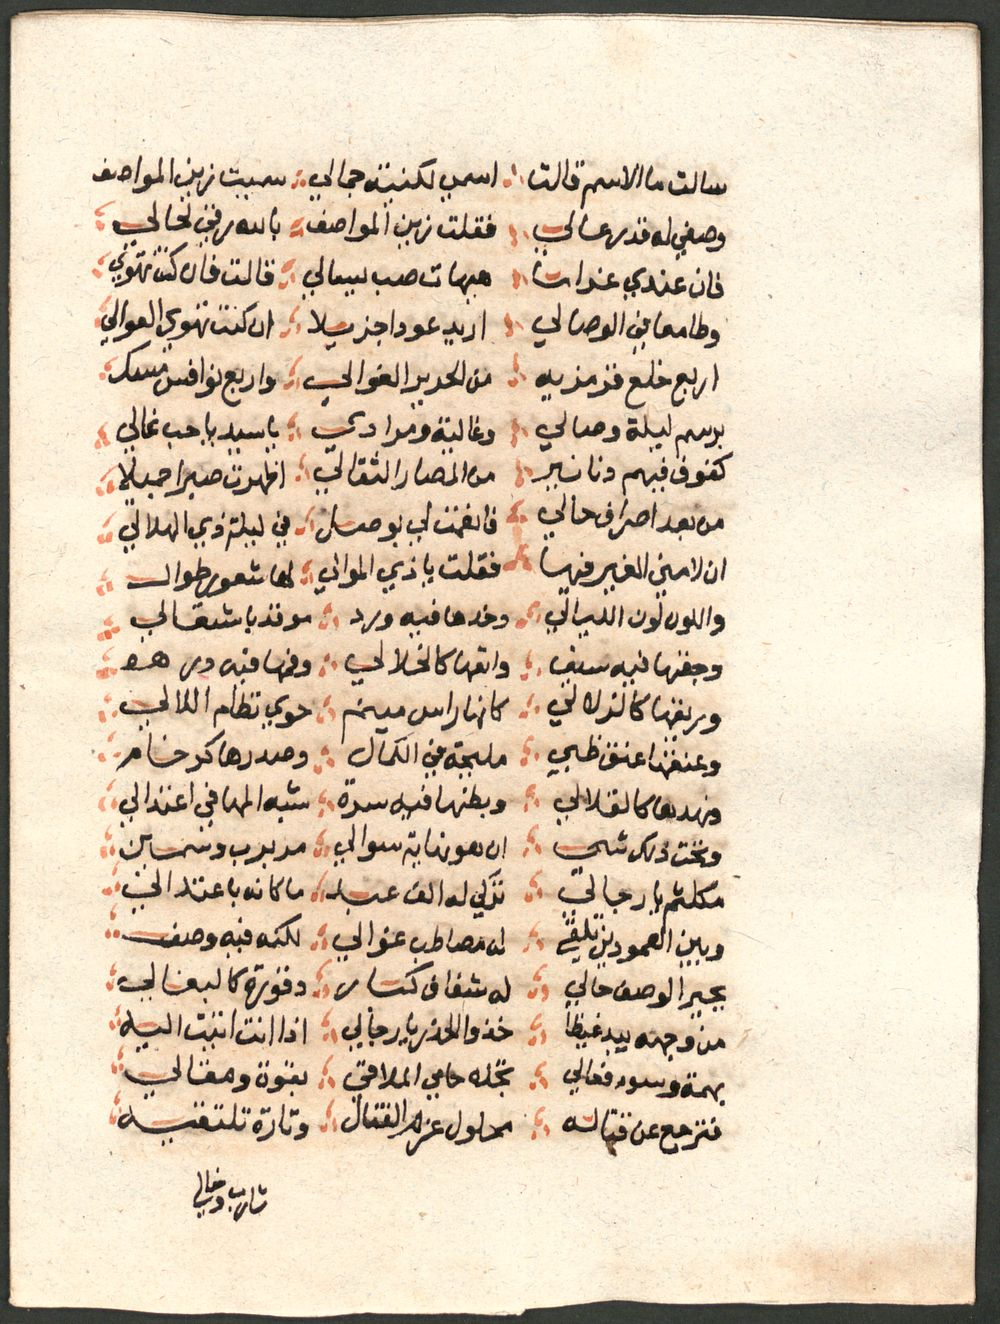 سالت ما الاسم قالت اسمي لكنيته جمالي سميت زين المواصف
وصفي له قدر عالي فقلت زين المواصف بالله رقي لحالي
فان عندي غراما هيهات صب يسالي قالت فان كنت تهوي
وطامعا في الوصالي اريد عودا جزيلا ان كنت تهوي العوالي
اربع خلع من الحرير الغوالي واربع نوافس مسك
برسم ليلة وصالي وغالية ومرادي يا سيد يا حب غالي
فيهم دنانير من المصار الثقالي اظهرت صبرا جميلا
من بعد اصراف حالي فانعمت لي بوصال في ليلة ذي الهلالي
ان لامني الغير فيها فقلت يا ذي الموالي لها شعور طوال
واللون لون الليالي وخدها فيه ورد موقد باشتعالي
وجفنها فيه سيف كالخلالي وفمها فيه در
وريقها كالزلالي كانها راس ميم حوي نظام اللالي
وعنقها عنق ظبي مليحة في الكمال وصدرها كرخام
ونهديها كالقلالي وبطنها فيه سرة شبه المها في اعتدالي
وتحت ذلك شي ان هو نهاية سوالي مدبرب وسمين
مكلثم يا رجالي له الف عبد
وبين العمودين تلقي له مصاطب عوالي لكنه فيه وصف
يحير الوصف حالي له شفاف كبار ونفرة كالبغالي
من وجهه يبد غيظا خذوا الحذر يا رجالي اذا انت اتيت اليه
بهمة وسور فعالي تجده حامي الملاقي بقوة ومقالي
فترجع عن قتاله محلول عزم القتال وتارة تلتقيه